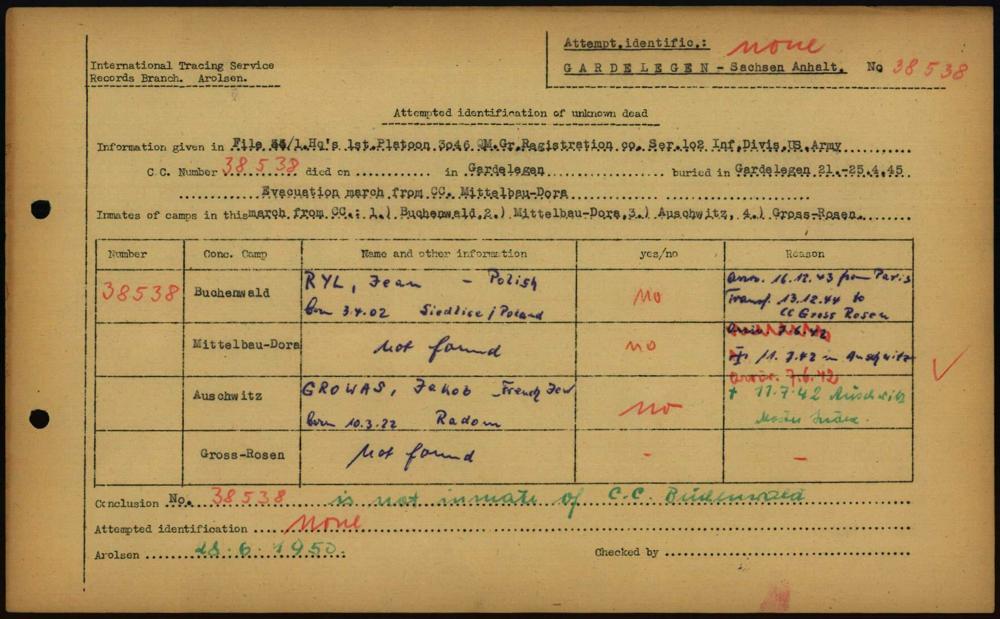 Attempt.identific.: none
International Tracing Service
Records Branch. Arolsen.
GARDELEGEN - Sachsen Anhalt. No 38538
Attempted identification of unknown dead
Information given in File /1.Hq's 1st.Platoon 3046 QM.Gr.Registration co. Ser.102 Inf.Divis.US.Army
C.C. Number 38538 died on ........... in Gardelegen ............... buried in Gardelegen 21.-25.4.45
Evacuation march from CC. Mittelbau-Dora
Inmates of camps in this march from CC.: 1.) Buchenwald,2.) Mittelbau-Dora,3.) Auschwitz, 4.) Gross-Rosen.
Number Conc. Camp Name and other information yes/no Reason
38538 Buchenwald RYL, Jean - Polish no arr. 16.12.43 from Paris
born 3.4.02 Siedlice / Poland Transf. 13.12.44 to
CC Gross Rosen
Mittelbau-Dora not found no
11.7.42 in Auschwitz
arriv. 7.6.42
Auschwitz GROWAS, Jakob French Jew no + 11.7.42 Auschwitz
born 10.3.22 Radom
Gross-Rosen not found - -
Conclusion No. 38538 is not inmate of C.C. Buchenwald
Attempted identification none
Arolsen 28.6.1950. Checked by